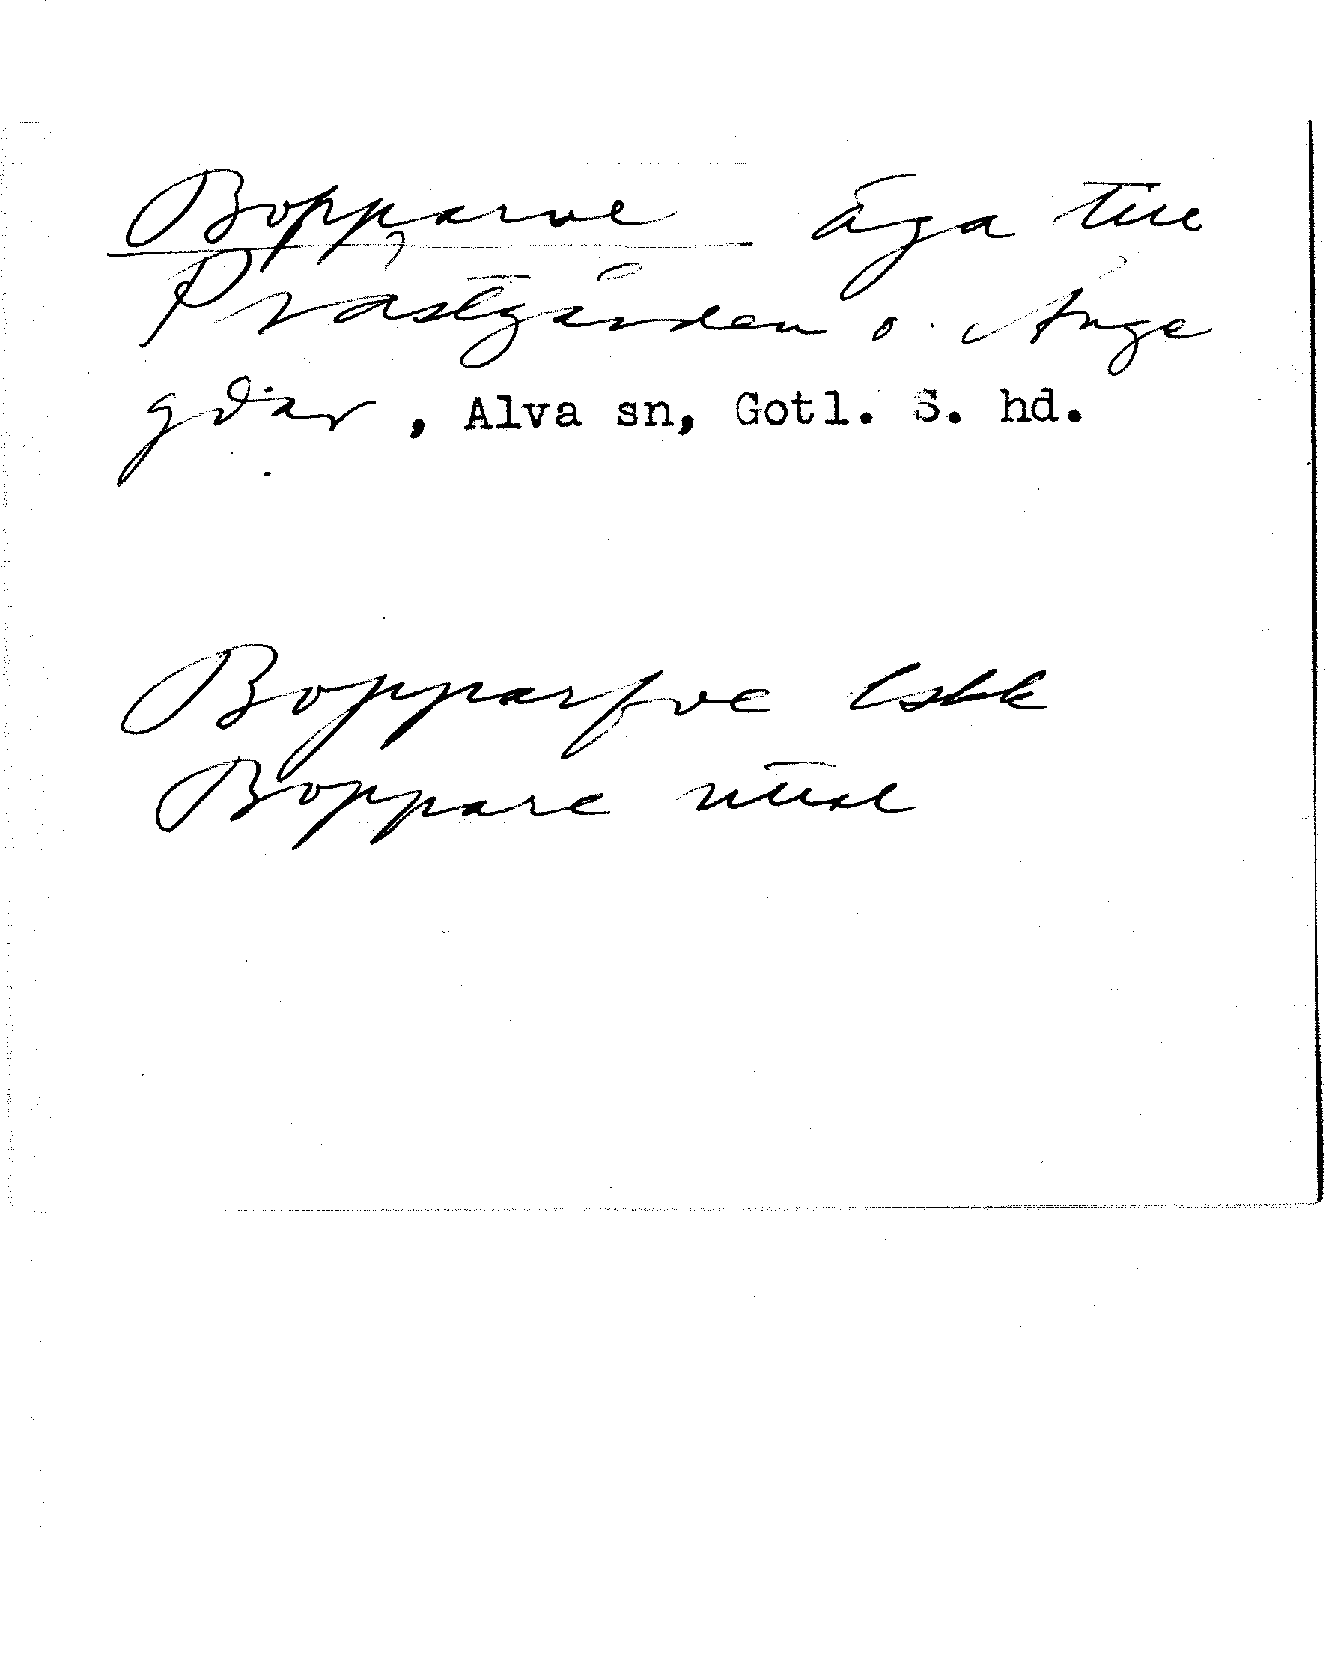 Bopparve äga till
Prästgården o. Ånge
gdar, Alva sn, Gotl. S. hd.
Bopparfve
Boppare uttal